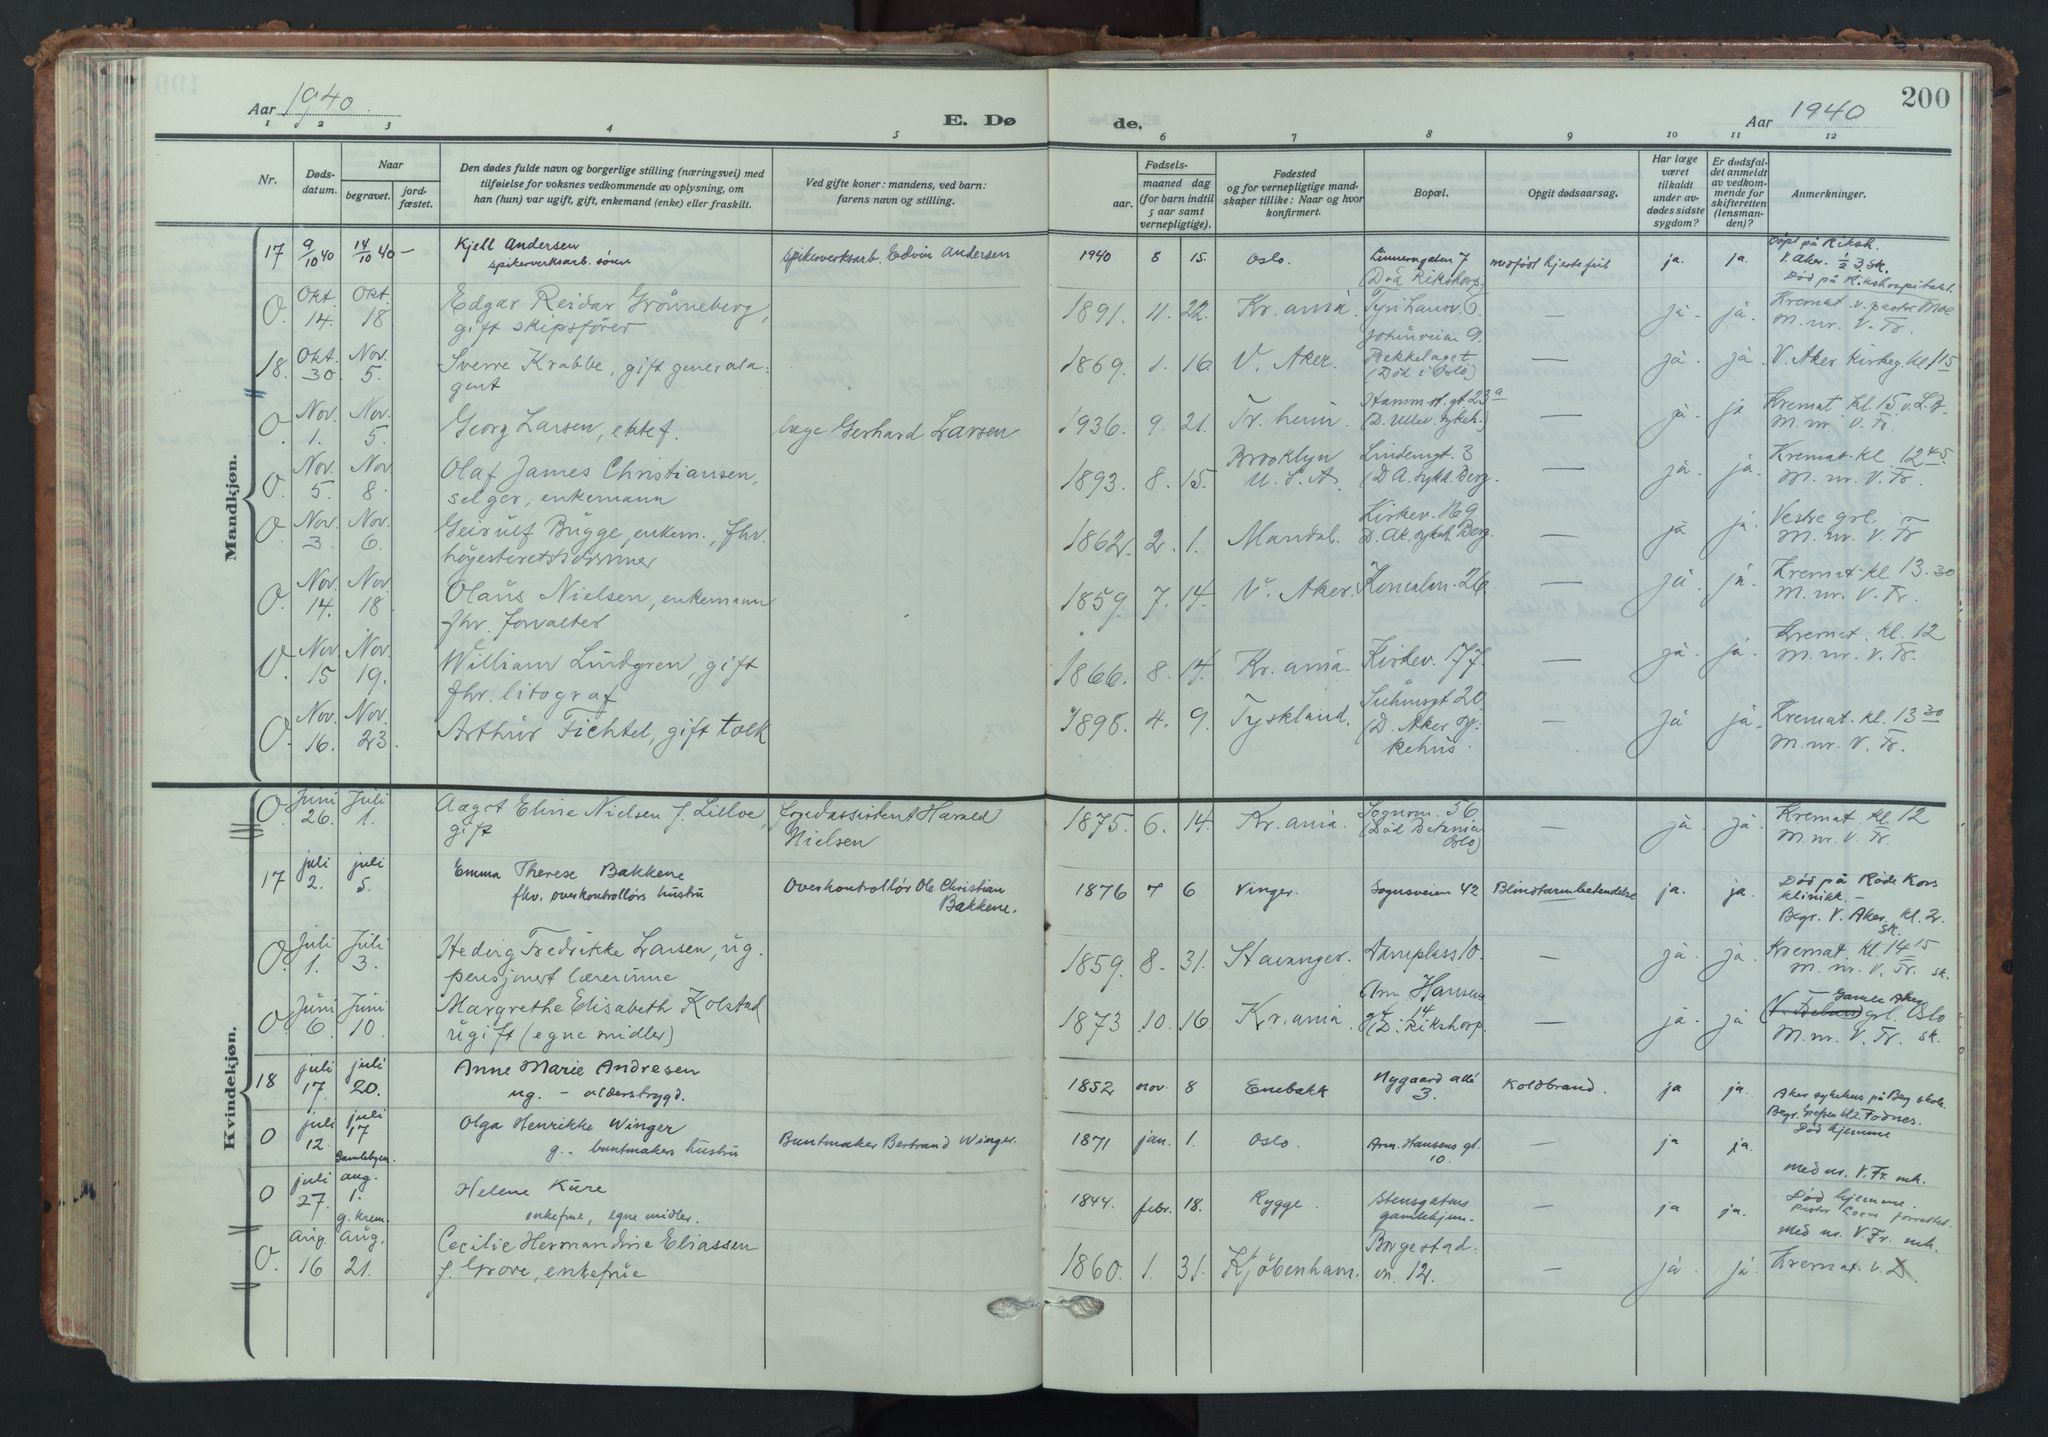 Aar 1940
E. Dø
de.
Aar 1940
200
1 2 3 4 5 6 7 8 9 10 11 12
Nr.
Døds-
datum.
Naar
begravet.
jord-
fæstet.
Den dødes fulde navn og borgerlige stilling (næringsvei) med
tilføielse for voksnes vedkommende av oplysning, om
han (hun) var ugift, gift, enkemand (enke) eller fraskilt.
Ved gifte koner: mandens, ved barn:
farens navn og stilling.
Fødsels-
aar.
maaned
dag
(for barn indtil
5 aar samt
vernepligtige).
Fødested
og for vernepligtige mand-
skaper tillike: Naar og hvor
konfirmert.
Bopæl.
Opgit dødsaarsag.
Har læge
været
tilkaldt
under av-
dødes sidste
sygdom?
Er dødsfal-
det anmeldt
av vedkom-
mende for
skifteretten
(lensman-
den)?
Anmerkninger.
Mandkjøn.
17 9/10 40 14/10 40 — Kjell Andersen
spikerverksarb. sønn
spikerverksarb. Edvin Andersen 1940 8 15. Oslo. Linnesgaten 7
(Død Rikshosp.)
medfødt hjertefeil ja. ja. Døpt på Riksh.
V. Aker. 1/2 3. sk.
Død på Rikshospitalet.
O. Okt. 14. Okt. 18. Edgar Reidar Grönneberg,
gift skipsförer
1891. 11. 22. Kr. ania. — ja. ja. Kremat. v. pastor Moe
M. nr. V. Fr.
18. Okt. 30. Nov. 5. Sverre Krabbe, gift generala-
gent
1869. 1. 16. V. Aker. Jotunveien 9.
Bekkelaget
(Död i Oslo)
— ja. ja. V. Aker kirkeg. kl. 1 15
O. Nov. 1. Nov. 5. Georg Larsen, ektef. læge Gerhard Larsen
1936. 9. 21. Tr. heim. 23 a
(D. Ullev. sykeh.)
— ja. ja Kremat. kl. 15
M. nr. V. Fr.
O. Nov. 5. Nov. 8. Olaf James Christiansen,
selger, enkemann
1893. 8. 15. Brooklyn
U. S. A. Lindemgt. 3
— ja. ja. Kremat. kl. 12 45.
M. nr. V. Fr.
O. Nov. 3. Nov. 6. Geirulf Bugge, enkem., fhv.
1862. 2. 1. Mandal. Kirkev.
— ja ja. Vestre grl.
M. nr. V. Fr
O. Nov. 14. Nov. 18. Olaus Nielsen, enkemann
fhv. forvalter
1859. 7. 14. V. Aker. 26. — ja. ja. Kremat. kl. 13.30
M. nr. V. Fr.
O. Nov. 15 Nov. 19. William Lindgren, gift
fhv. litograf
1866. 8. 14. Kr. ania. Kirkev. 177. — ja. ja. Kremat. kl. 12
M. nr. V. Fr.
O. Nov. 16. Nov. 23. Arthur Fichtel, gift tolk
1898. 4. 9. Tyskland. Suhmsgt 20
(D. Aker sy-
kehus.
— ja ja. Kremat. kl. 13 30
M. nr. V. Fr.
Kvindekjøn.
O. Juni 26. Juli 1. Aagot Eline Nielsen f. Lilloe,
gift
Harald
Nielsen
1875. 6. 14. Kr. ania. Sognsv. 56
(Död Betanien
Oslo)
— ja. ja. Kremat. kl. 12
M. nr. V. Fr.
17 juli 2. juli 5. Emma Therese Bakkene
fhv. overkontrollørs hustru
Overkontrollør Ole Christian
Bakkene.
1876 7 6 Vinger. Sognsveien 42 Blindtarmbetendelse ja. ja. Død på Røde Kors
klinikk. —
Begr. V. Aker. kl. 2.
sk.
O. Juli 1. Juli 3. Hedvig Fredrikke Larsen, ug.
pensjonert lærerinne
1859. 8. 31. Stavanger. Damplass 10. — ja. ja. Kremat. kl. 14 15
M. nr. V. Fr. sk.
O Juni 6. Juni 10. Margrethe Elisabeth Kolstad
ugift (egne midler)
1873 10. 16. Kr. ania. Arn. Hansens
gt. 14
(D. Rikshosp.
— ja. ja Gamle Aker
grl. Oslo
M. nr. V. Fr. sk.
18 juli 17. juli 20. Anne Marie Andresen
ug. — alderstrygd.
1852 nov. 8 Enebakk Nygaard allé
3.
Koldbrand. ja ja. Aker sykehus på Berg skole.
Begr. Grefsen kl. 2 Fodnes.
O juli 12. juli 17
Gamlebyen. Olga Henrikke Winger
g. – buntmakers hustru
Buntmaker Bertrand Winger. 1871 jan. 1. Oslo. Arn. Hansens gt.
10.
— ja ja. Död hjemme
Med nr. V. Fr. mk.
O juli 27. aug. 1.
g. krem. Helene Kure
enkefrue, egne midler.
1844 febr. 18. Rygge. Stensgatens
gamlehjem.
— ja ja. Død hjemme.
Med nr. V. Fr. mk.
O. Aug. 16 Aug. 21. Cecilie Hermandine Eliassen
f. Grove, enkefrue
1860. 1. 31. Kjöbenhavn. Borgestad-
vn. 12. — ja. ja. Kremat.